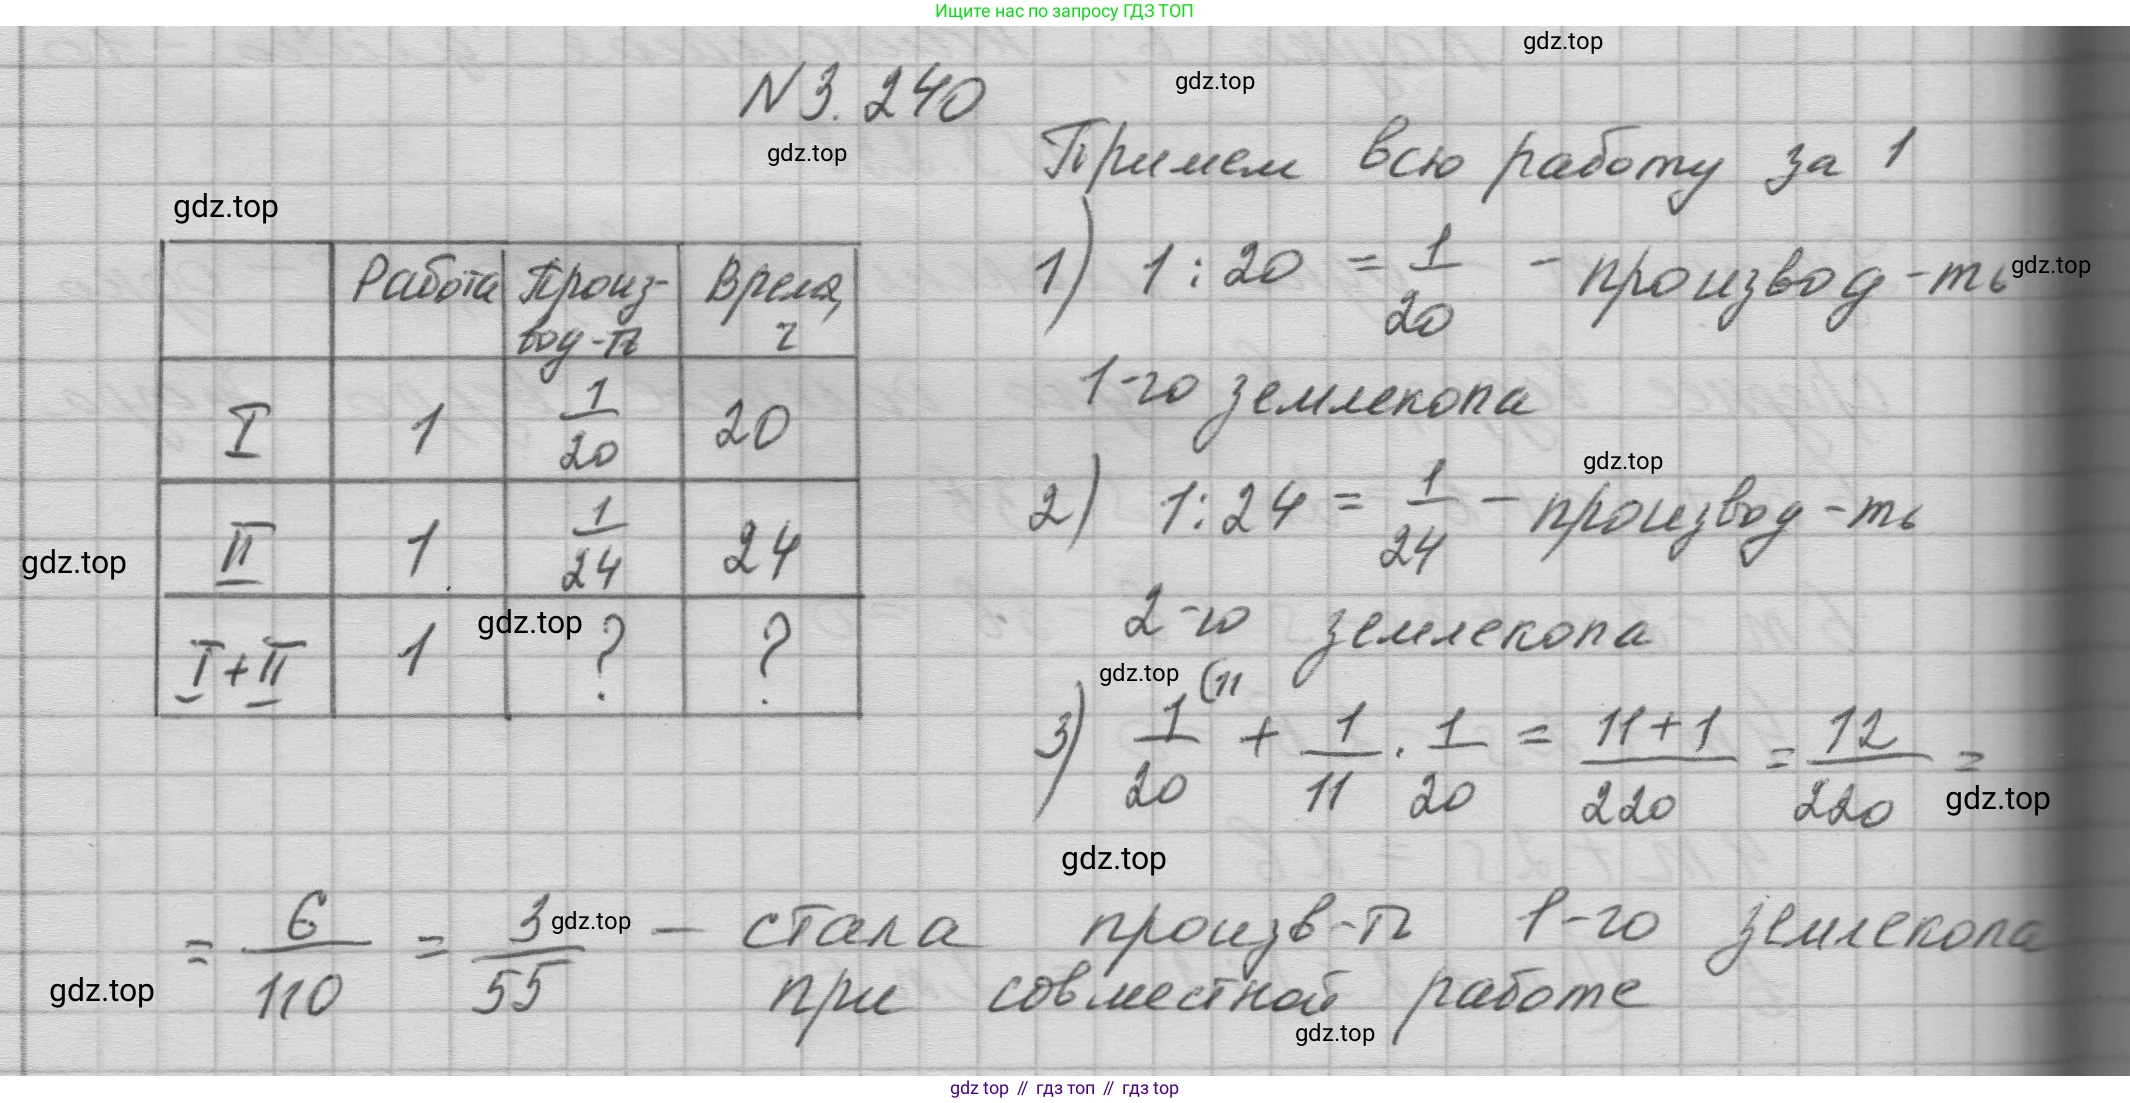 Ищите нас по запросу ГДЗ ТОП
gdz.top
N 3. 240
gdz.top
gdz.top
Примем всю работу за 1
gdz.top
Работа Произ- Время,
вод-ть ч
I 1 1/20 20
II 1. 1/24 24
I+II 1 ? ?
gdz.top
gdz.top
1) 1 : 20 = 1/20 - производ-ть
gdz.top
1-го землекопа
gdz.top
2) 1 : 24 = 1/24 - производ-ть
2-го землекопа
gdz.top
3) 1/20 (11 + 1/11 · 1/20 = 11+1/220 = 12/220 =
gdz.top
gdz.top
= 6/110 = 3/55 - стала произв-ть 1-го землекопа
gdz.top
при совместной работе
gdz.top
gdz.top
gdz top // гдз топ // гдз top